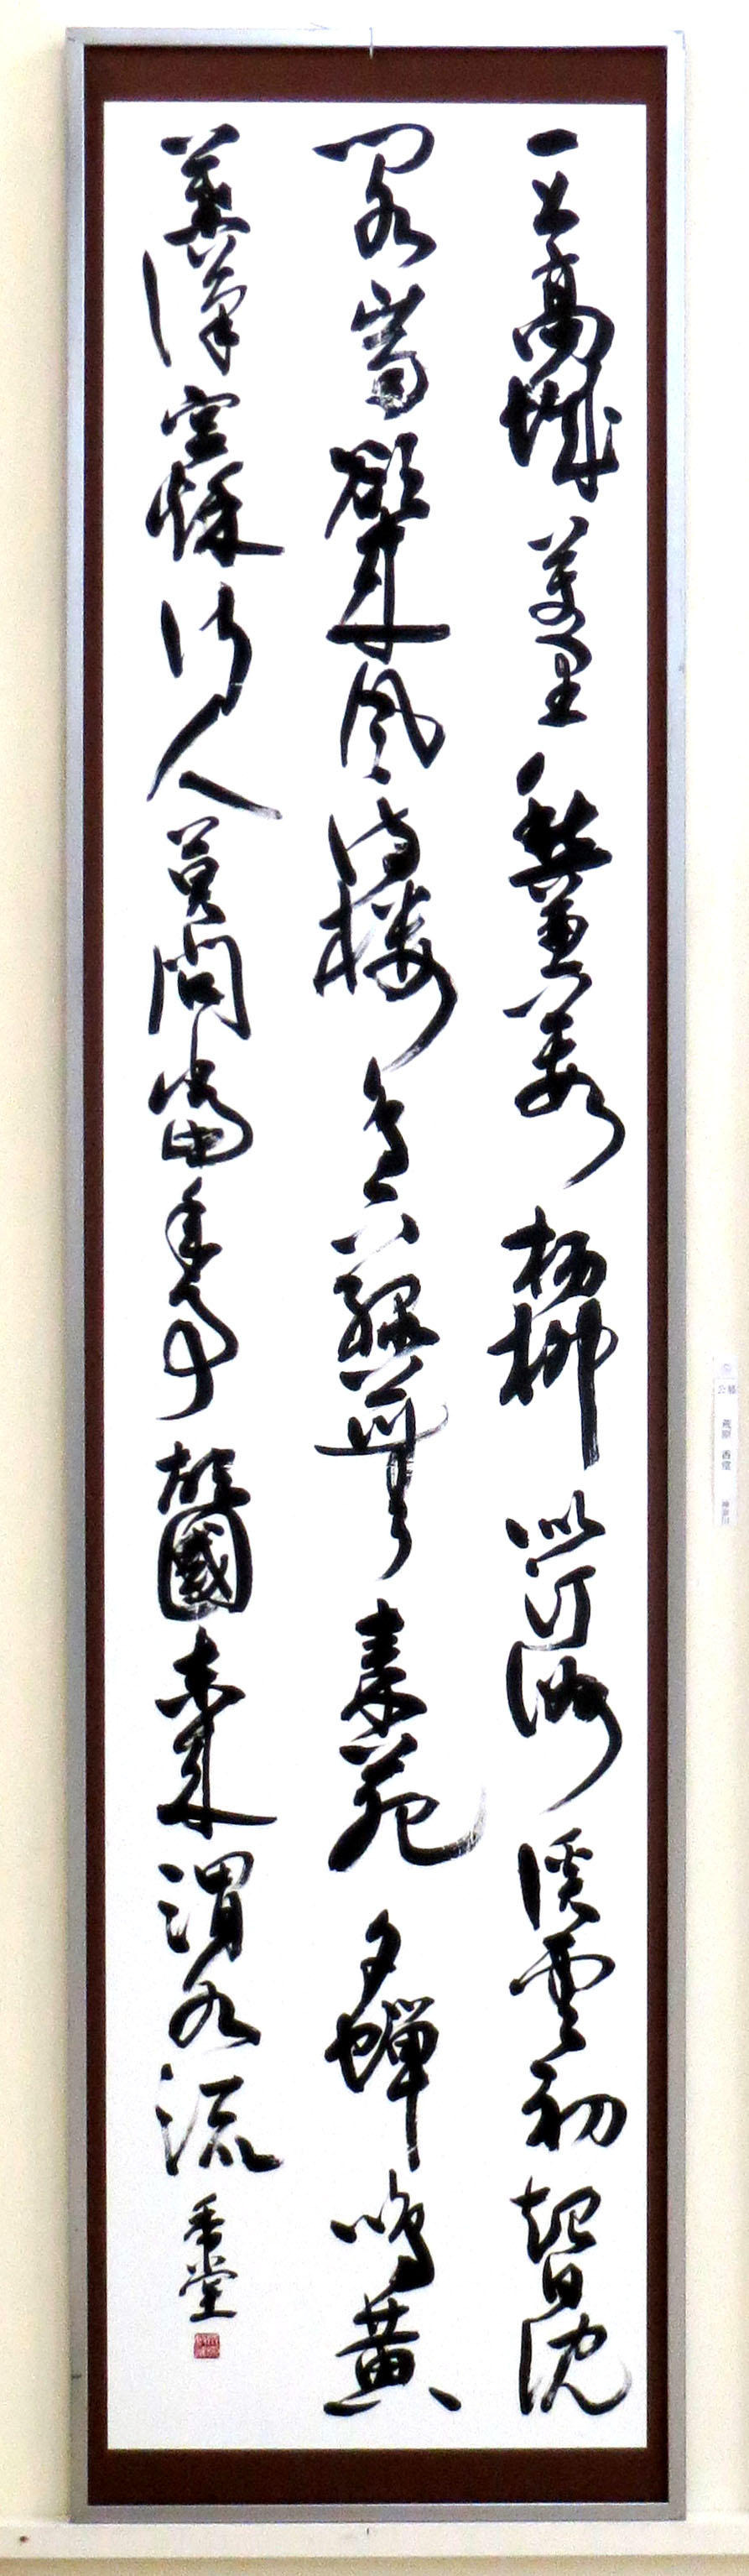 一上高城萬里愁蒹葭楊柳似汀洲溪雲初起日沈
閣山雨欲來風滿樓鳥下綠蕪秦苑夕蟬鳴黄
葉漢宮秋行人莫問當年事故國東來渭水流 香堂